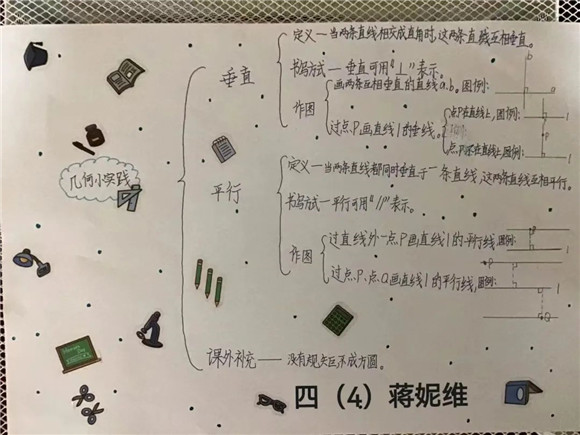 定义—当两条直线相交成直角时,这两条直线互相垂直。
垂直
书写方式—垂直可用“⊥”表示。
作图
画两条互相垂直的直线a.b。图例:
b
a
过点P画直线l的垂线。
点P在直线上,图例:
点P不在直线上,图例:
几何小实践
定义—当两条直线都同时垂直于一条直线,这两条直线互相平行。
平行
书写方式—平行可用“//”表示。
作图
过直线外一点P画直线l的平行线,图例:
过点P、点Q画直线l的平行线,图例:
课外补充——没有规矩不成方圆。
四(4)蒋妮维